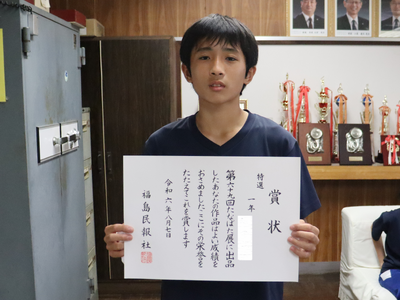 賞状
特選
一年
第六十九回たなばた展に出品
したあなたの作品はよい成績を
おさめました ここにその栄誉を
たたえてこれを賞します
令和六年八月七日
福島民報社